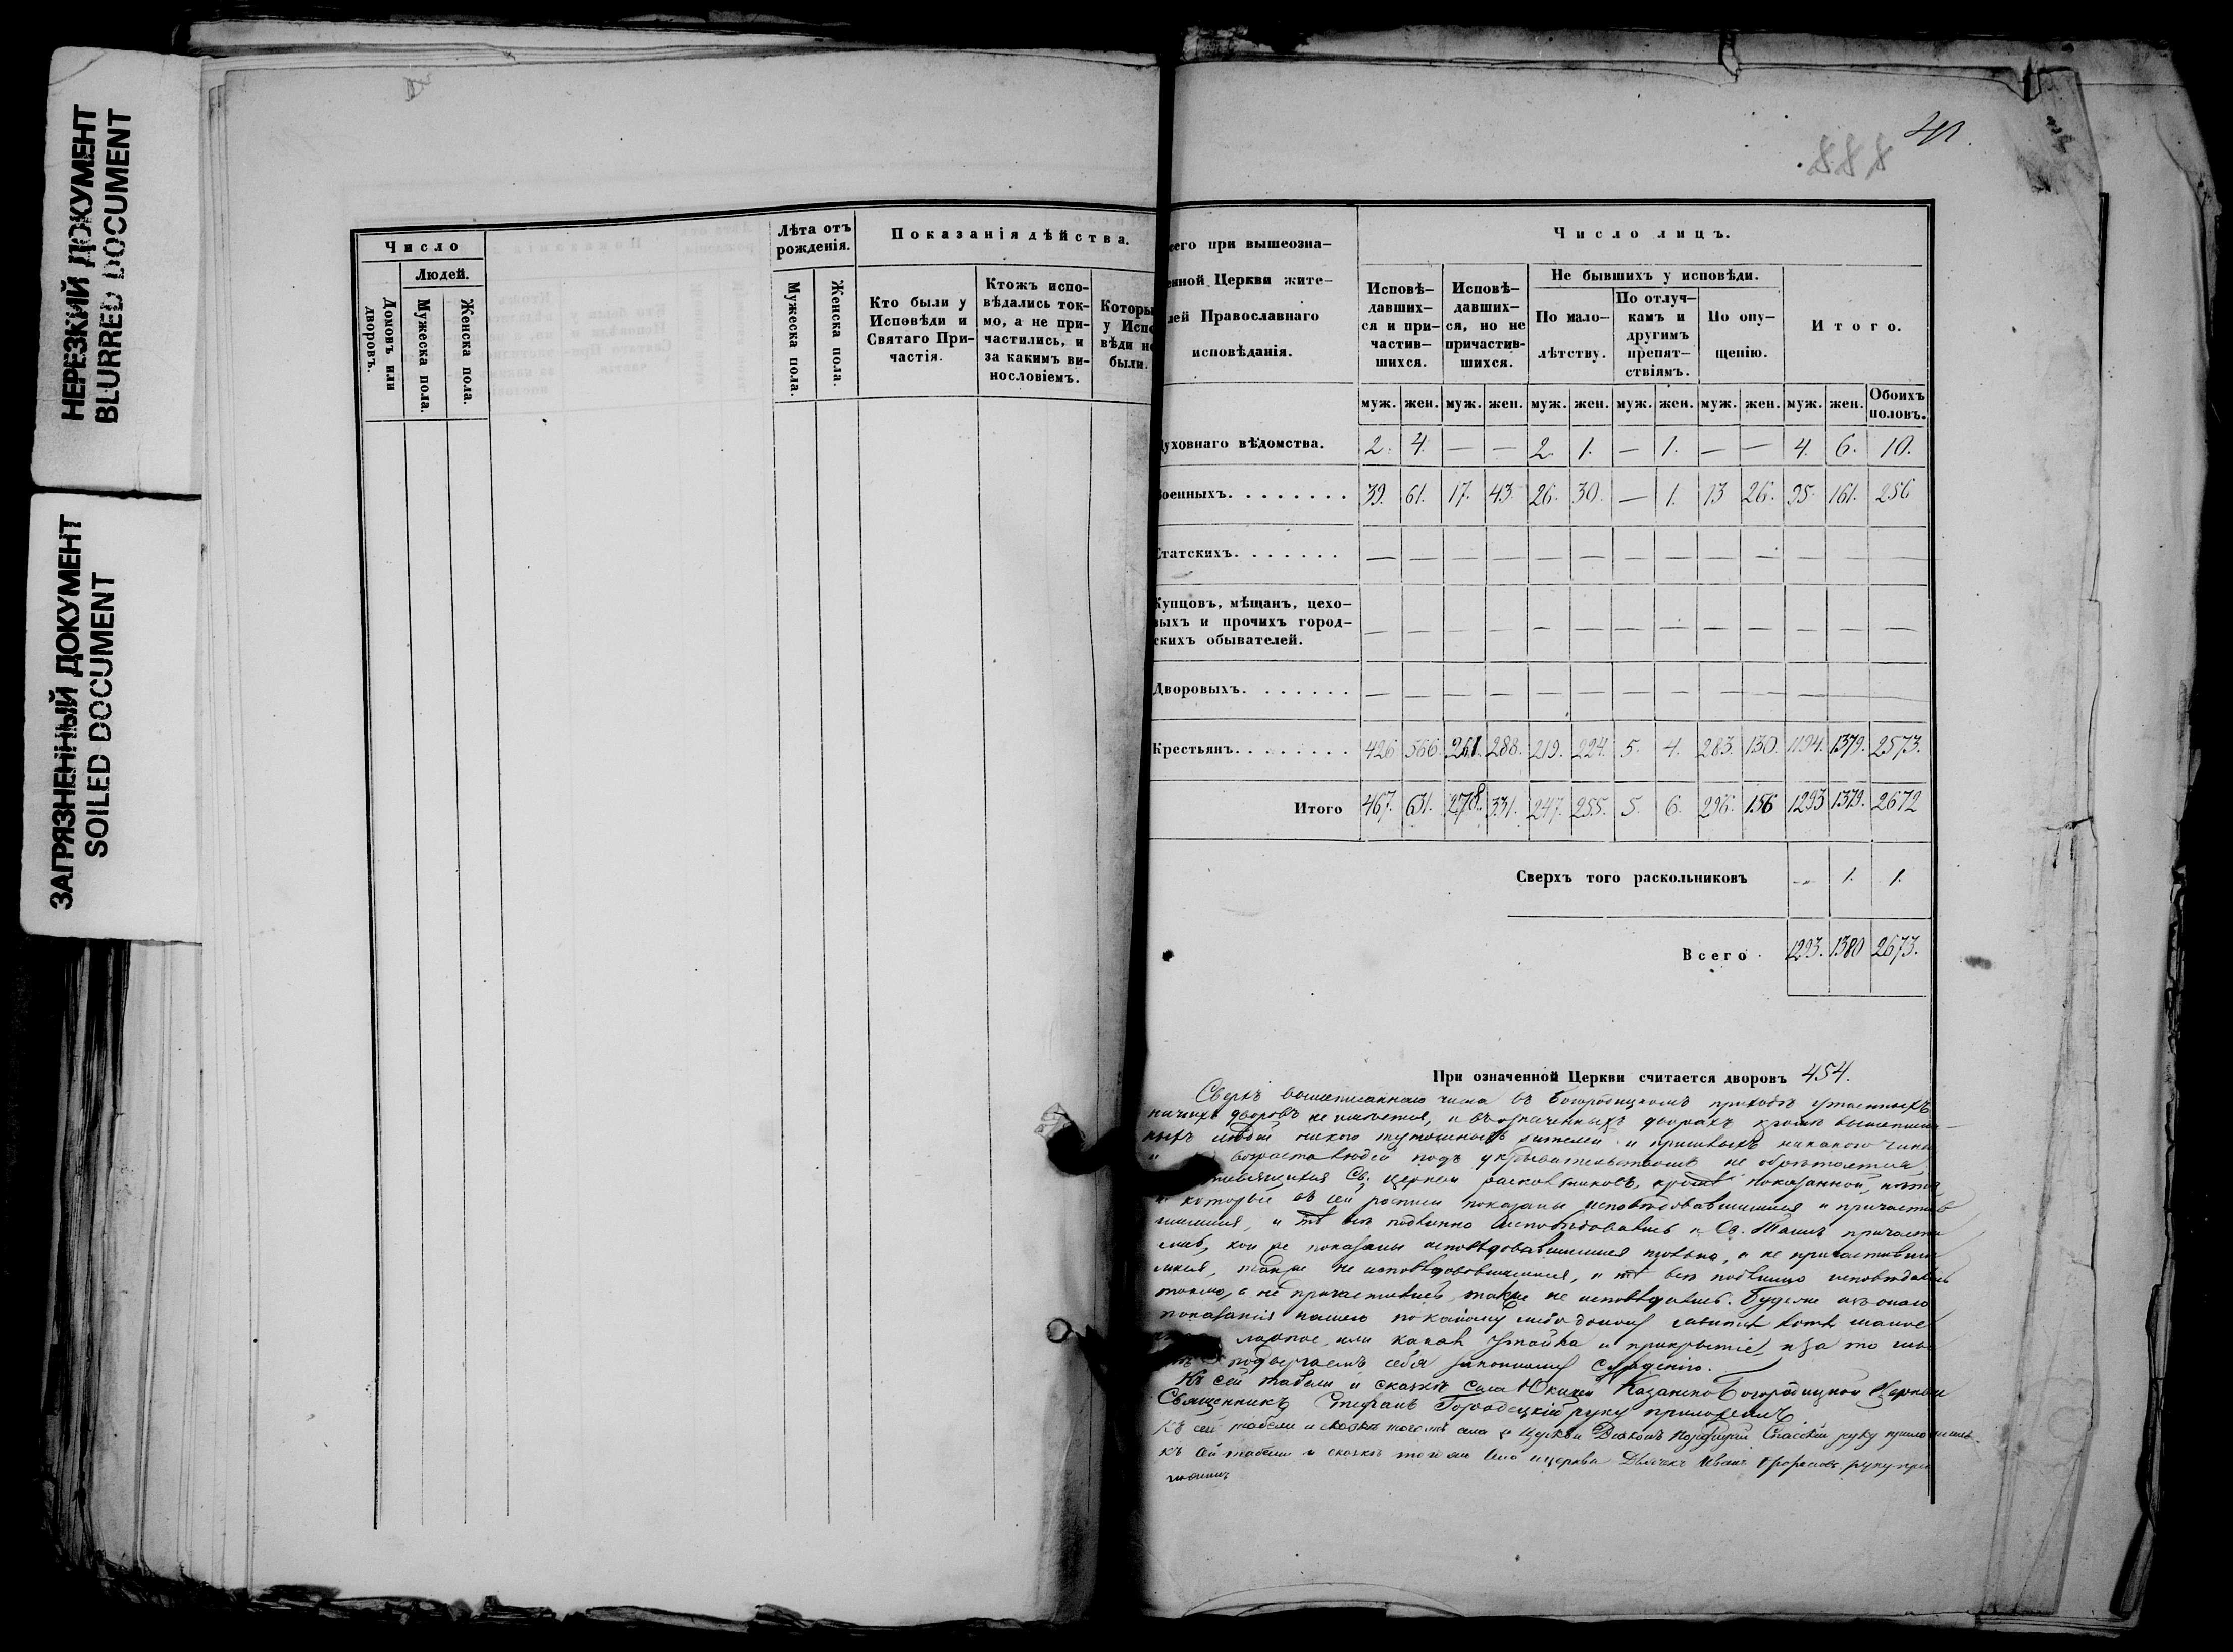 НЕРЕЗКИЙ ДОКУМЕНТ
BLURRED DOCUMENT
ЗАГРЯЗНЕННЫЙ ДОКУМЕНТ
SOILED DOCUMENT
Число
Людей.
Домовъ или дворовъ.
Мужеска пола.
Женска пола.
Лѣта отъ рожденія.
Мужеска пола.
Женска пола.
Показанія дѣйства.
Кто были у
Исповѣди и
Святаго При-
частія.
Ктожъ испо-
вѣдались ток-
мо, а не при-
частились, и
за какимъ ви-
нословіемъ.
Которы
у Испо
вѣди не
были.
888
его при вышеозна-
енной Церкви жите-
лей Православнаго
исповѣданія.
Число лицъ.
Исповѣ-
давших-
ся и при-
частив-
шихся.
Исповѣ-
давших-
ся, но не
причастив-
шихся.
Не бывшихъ у исповѣди.
По мало-
лѣтству.
По отлуч-
камъ и
другимъ
препят-
ствіямъ.
По опу-
щенію.
Итого.
муж. жен. муж. жен. муж. жен. муж. жен. муж. жен. муж. жен. Обоихъ половъ.
уховнаго вѣдомства. 2. 4. — — 2. 1. — 1. — — 4. 6. 10.
оенныхъ. . . . . . . . 39. 61. 17. 43. 26. 30. — 1. 13 26. 95. 161. 256
Статскихъ. . . . . . . — — — — — — — — — — — — —
Купцовъ, мѣщанъ, цехо-
выхъ и прочихъ город-
скихъ обывателей. — — — — — — — — — — — — —
Дворовыхъ. . . . . . . — — — — — — — — — — — — —
Крестьянъ. . . . . . . . 426 566. 261. 288. 219. 224. 5. 4. 283. 130. 1194. 1379. 2573.
Итого 467. 631. 278. 331. 247. 255. 5. 6. 296. 156 1293 1379. 2672
Сверхъ того раскольниковъ — 1. 1.
Всего 1293. 1380 2673.
При означенной Церкви считается дворовъ 454.
Сверхъ вышеписаннаго числа въ Богородицкомъ приходѣ утаенныхъ
ничьихъ дворовъ не имѣется, и въ означенныхъ дворахъ кромѣ вышеписан-
ныхъ людей никого тутошнихъ жителей и пришлыхъ никакого чина
и возраста людей подъ укрывательствомъ не обрѣтается,
Св. Церкви раскольниковъ, кромѣ показанной,
и которые въ сей росписи показаны исповѣдовавшимися и причастив
шимися, и тѣ всѣ подлинно исповѣдовались и Св. Таинъ причасти
лись, кои же показаны исповѣдовавшимися токмо, а не причастивши
мися, также не исповѣдовавшимися, и тѣ всѣ подлинно исповѣдались
токмо, а не причастились, также не исповѣдались. Буде же изъ онаго
показанія нашего по какому либо доносу явится хотя малое
что ложное, или какая утайка и прикрытіе, и за то мы
подвергаемъ себя законному сужденію.
Къ сей табели и сказкѣ села Юкшей Казанско Богородицкой Церкви
Священникъ Стефанъ Городецкій руку приложилъ
Къ сей табели и сказкѣ тогожъ села и Церкви Діаконъ Спасскій руку приложилъ
Къ сей табели и сказкѣ того же села и церкви Дьячекъ Иванъ руку при
ложилъ